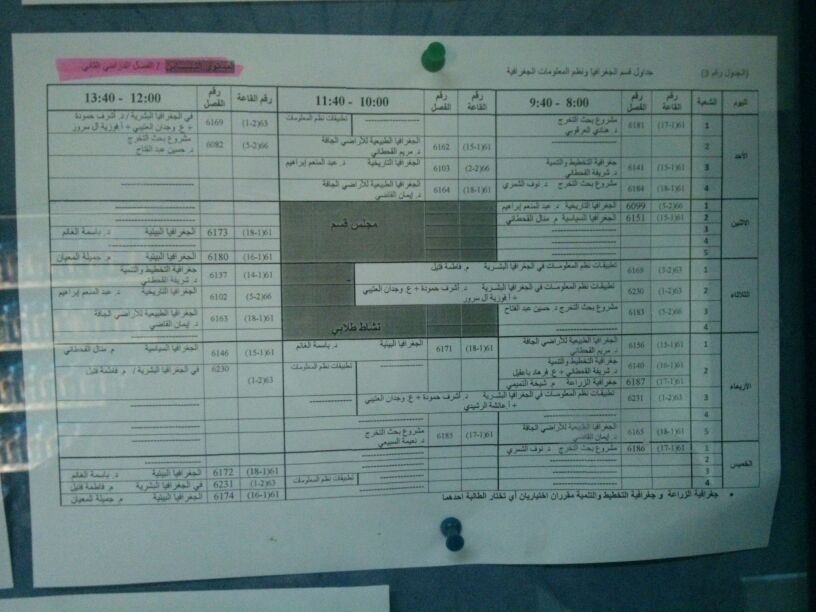 (الجدول رقم 3) جداول قسم الجغرافيا ونظم المعلومات الجغرافية / الفصل الدراسي الثاني
اليوم الشعبة 8:00 - 9:40 رقم الفصل رقم القاعة 10:00 - 11:40 رقم الفصل رقم القاعة 12:00 - 13:40 رقم الفصل رقم القاعة
الأحد
1 مشروع بحث التخرج 6181 61(1-17) تطبيقات نظم المعلومات في الجغرافيا البشرية / د. أشرف حمودة 6169 63(1-2)
د. هنادي العرقوبي + ع. وجدان العتيبي + أ. فوزية آل سرور
2 الجغرافيا الطبيعية للأراضي الجافة 6162 61(1-15) مشروع بحث التخرج 6082 66(2-5)
د. مريم القحطاني د. حسين عبد الفتاح
3 جغرافية التخطيط والتنمية 6141 61(1-15) الجغرافيا التاريخية د. عبد المنعم إبراهيم 6103 66(2-2)
د. شريفة القحطاني
4 مشروع بحث التخرج د. نوف الشمري 6184 61(1-18) الجغرافيا الطبيعية للأراضي الجافة 6164 61(1-18)
د. إيمان القاضي
الاثنين
1 الجغرافيا التاريخية د. عبد المنعم إبراهيم 6099 66(2-5) مجلس قسم
2 الجغرافيا السياسية م. منال القحطاني 6151 61(1-15)
3 الجغرافيا البيئية د. باسمة الغانم 6173 61(1-18)
4
5 الجغرافيا البيئية م. جميلة المعيان 6180 61(1-16)
الثلاثاء
1 تطبيقات نظم المعلومات في الجغرافيا البشرية م. فاطمة فتيل 6169 63(2-5) جغرافية التخطيط والتنمية 6137 61(1-14)
د. شريفة القحطاني
2 تطبيقات نظم المعلومات في الجغرافيا البشرية د. أشرف حمودة + ع. وجدان العتيبي 6230 63(1-2) الجغرافيا التاريخية د. عبد المنعم إبراهيم 6102 66(2-5)
+ أ. فوزية آل سرور
3 مشروع بحث التخرج د. حسين عبد الفتاح 6183 66(2-5) الجغرافيا الطبيعية للأراضي الجافة 6163 61(1-18)
د. إيمان القاضي
4 نشاط طلابي
الأربعاء
1 الجغرافيا الطبيعية للأراضي الجافة 6156 61(1-15) الجغرافيا البيئية د. باسمة الغانم 6171 61(1-18) الجغرافيا السياسية م. منال القحطاني 6146 61(1-15)
د. مريم القحطاني
2 جغرافية التخطيط والتنمية 6140 61(1-16) تطبيقات نظم المعلومات في الجغرافيا البشرية / م. فاطمة فتيل 6230 63(1-2)
د. شريفة القحطاني + ع. فرهاد باعقيل
جغرافية الزراعة م. شيخة التميمي 6187 61(1-17)
3 تطبيقات نظم المعلومات في الجغرافيا البشرية د. أشرف حمودة + ع. وجدان العتيبي 6231 63(1-2)
+ أ. عائشة الرشيدي
4
5 الجغرافيا الطبيعية للأراضي الجافة 6165 61(1-18) مشروع بحث التخرج 6185 61(1-17)
د. إيمان القاضي د. نعيمة السبيعي
الخميس
1 مشروع بحث التخرج د. نوف الشمري 6186 61(1-17)
2
3 الجغرافيا البيئية د. باسمة الغانم 6172 61(1-18)
4 تطبيقات نظم المعلومات في الجغرافيا البشرية م. فاطمة فتيل 6231 63(1-2)
الجغرافيا البيئية م. جميلة المعيان 6174 61(1-16)
• جغرافية الزراعة و جغرافية التخطيط والتنمية مقرران اختياريان أي تختار الطالبة احدهما